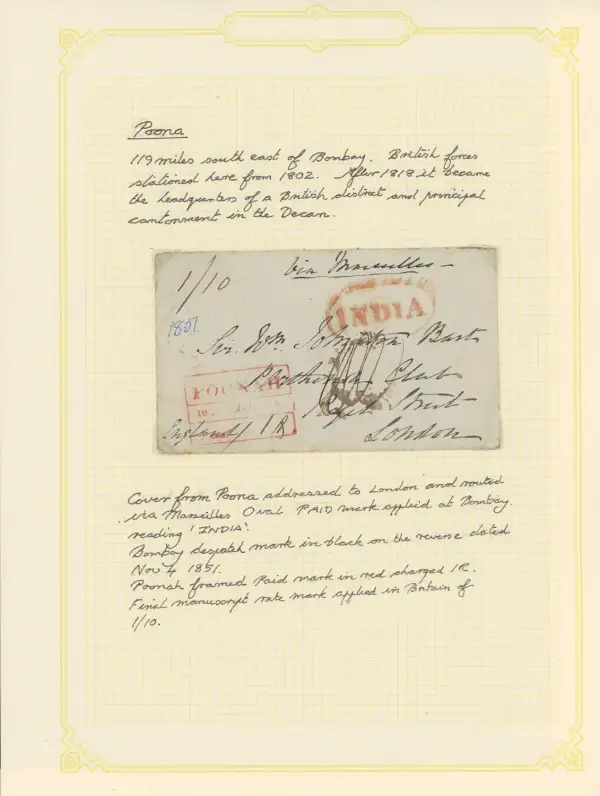 Poona
119 miles south east of Bombay. British forces
stationed here from 1802. After 1818 it became
the headquarters of a British district and principal
cantonment in the Decan.
1/10
Via Marseilles
INDIA
1851.
Sir Wm. Johnston Bart
Club
Street
London
POONAH
England 1R
Cover from Poona addressed to London and routed
via Marseilles Oval PAID mark applied at Bombay.
reading 'INDIA'.
Bombay despatch mark in black on the reverse dated
Nov 4 1851.
Poonah framed Paid mark in red charged 1R.
Final manuscript rate mark applied in Britain of
1/10.